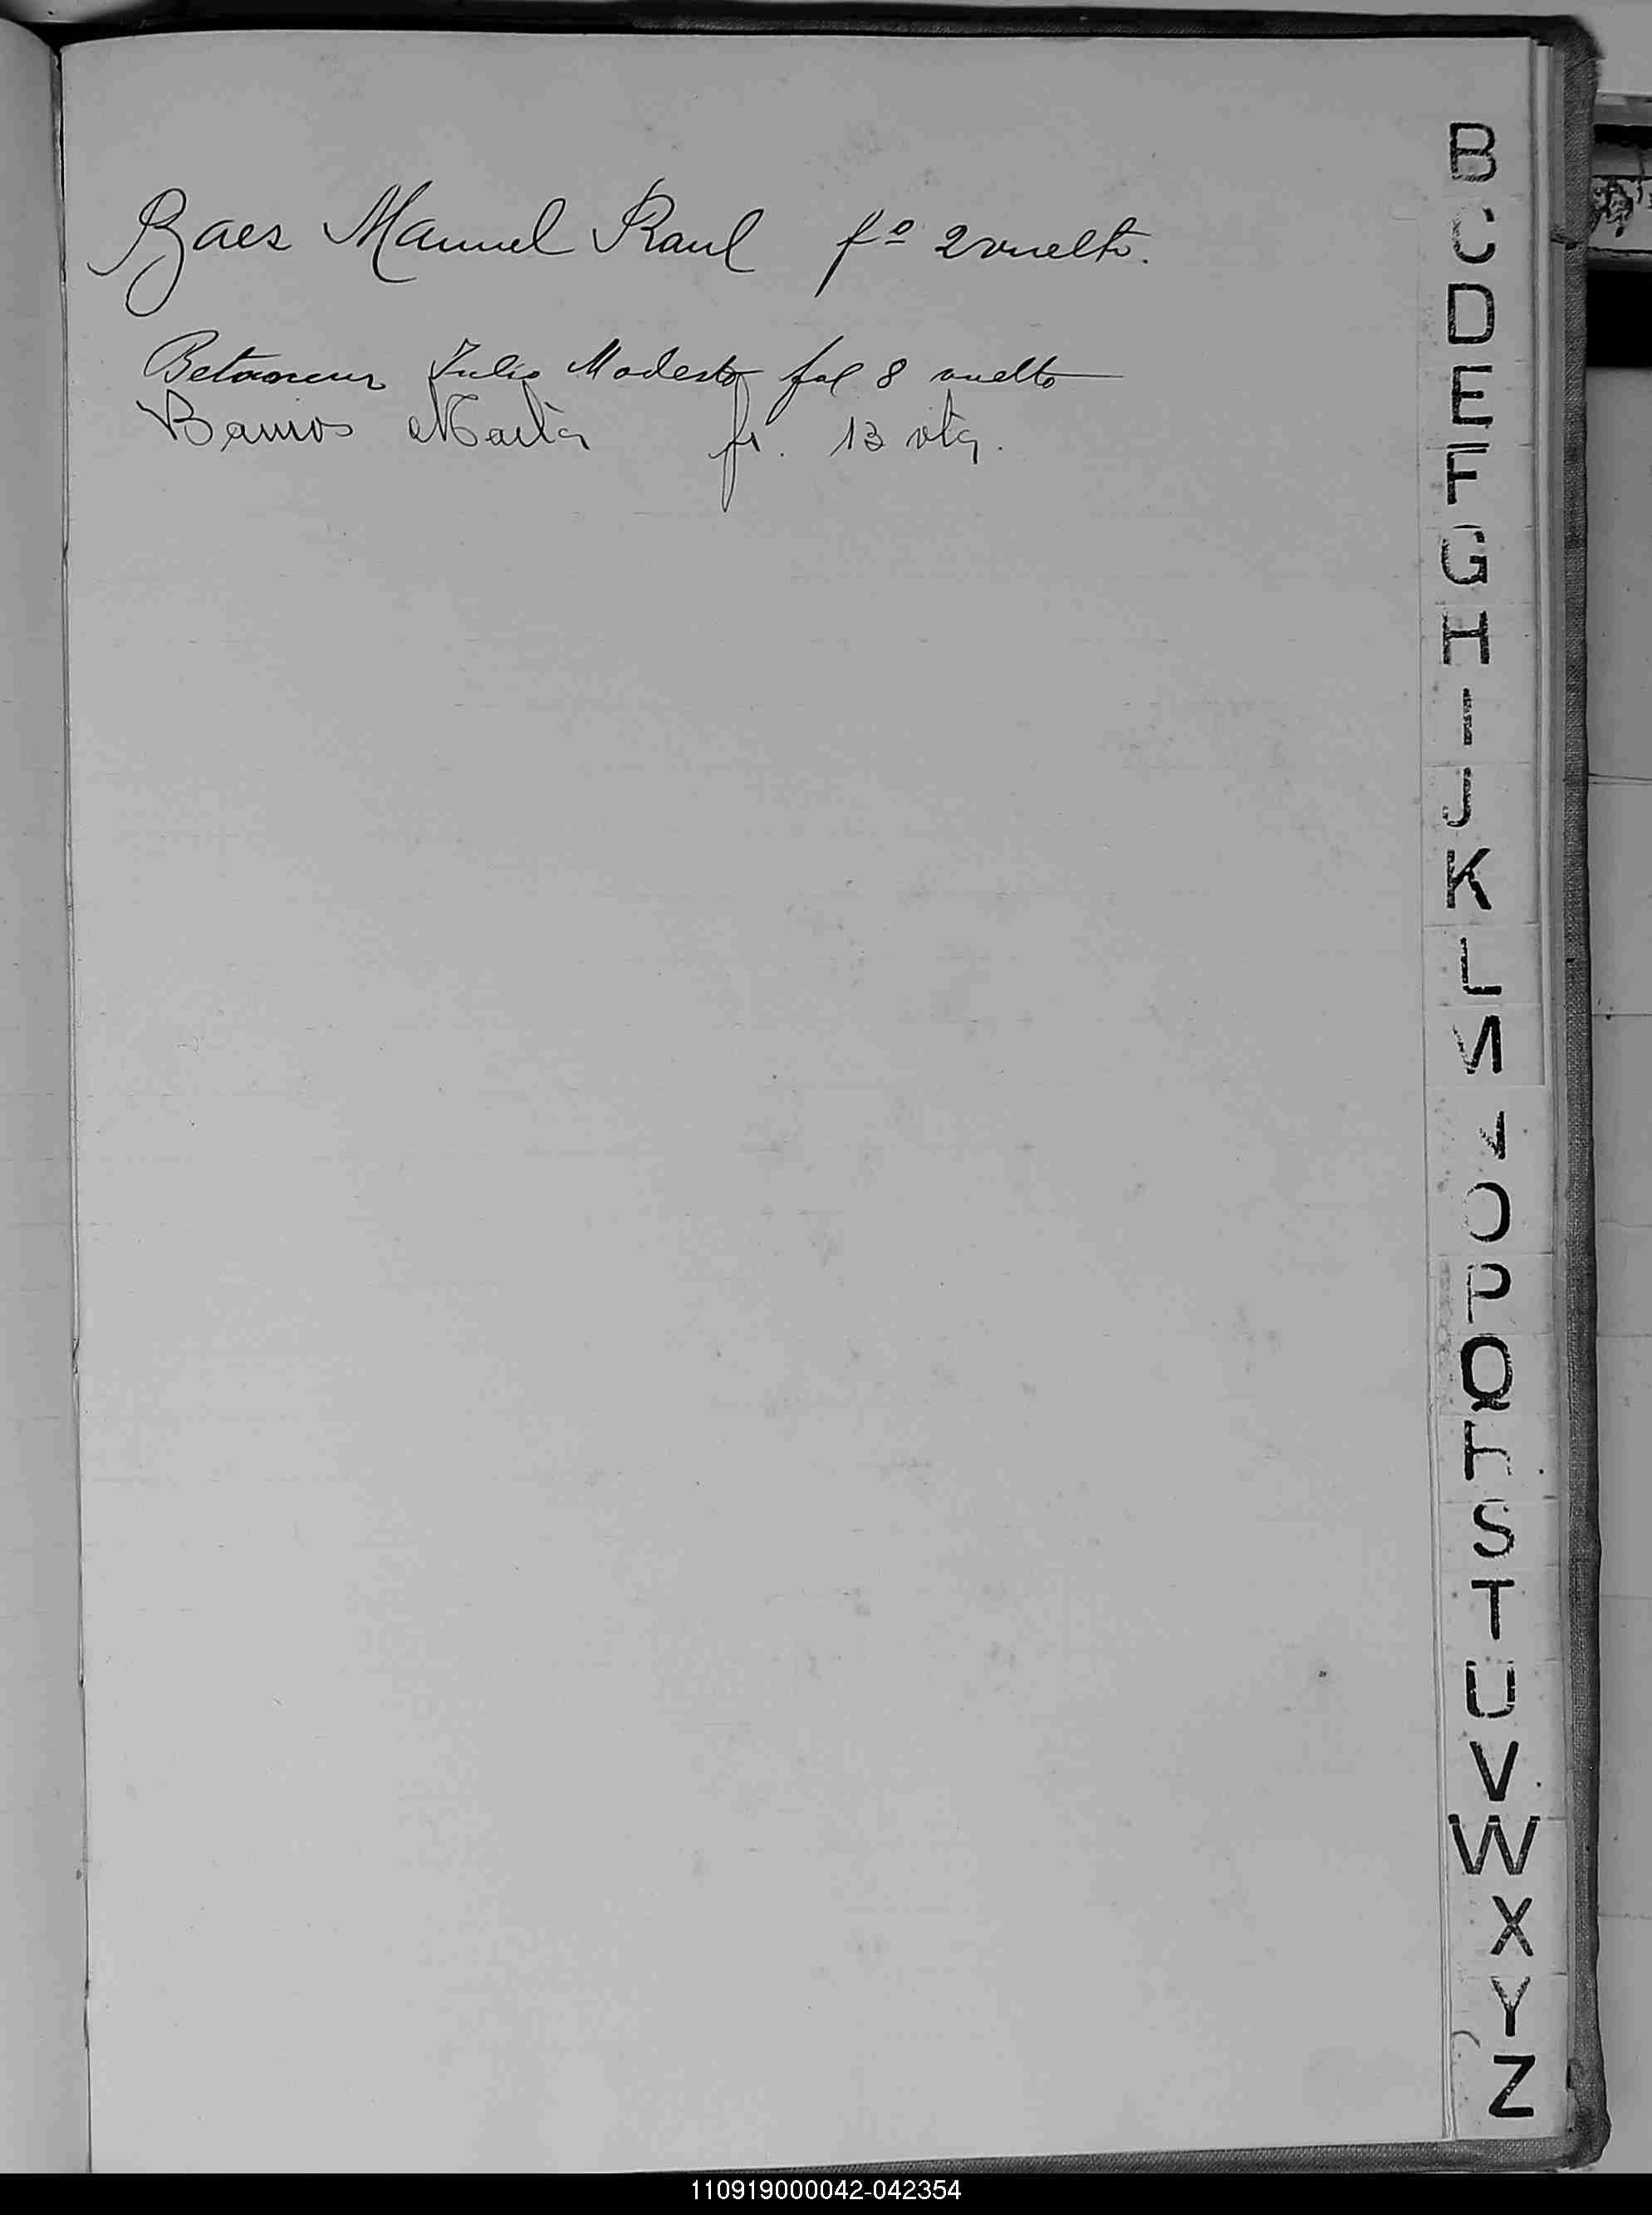 Baes Manuel Raul fº 2 vuelto.
Betancur Julio Modesto fol 8 vuelto
Barrios María fs. 13 vta.
B
C
D
E
F
G
H
I
J
K
L
M
N
O
P
Q
R
S
T
U
V
W
X
Y
Z
110919000042-042354